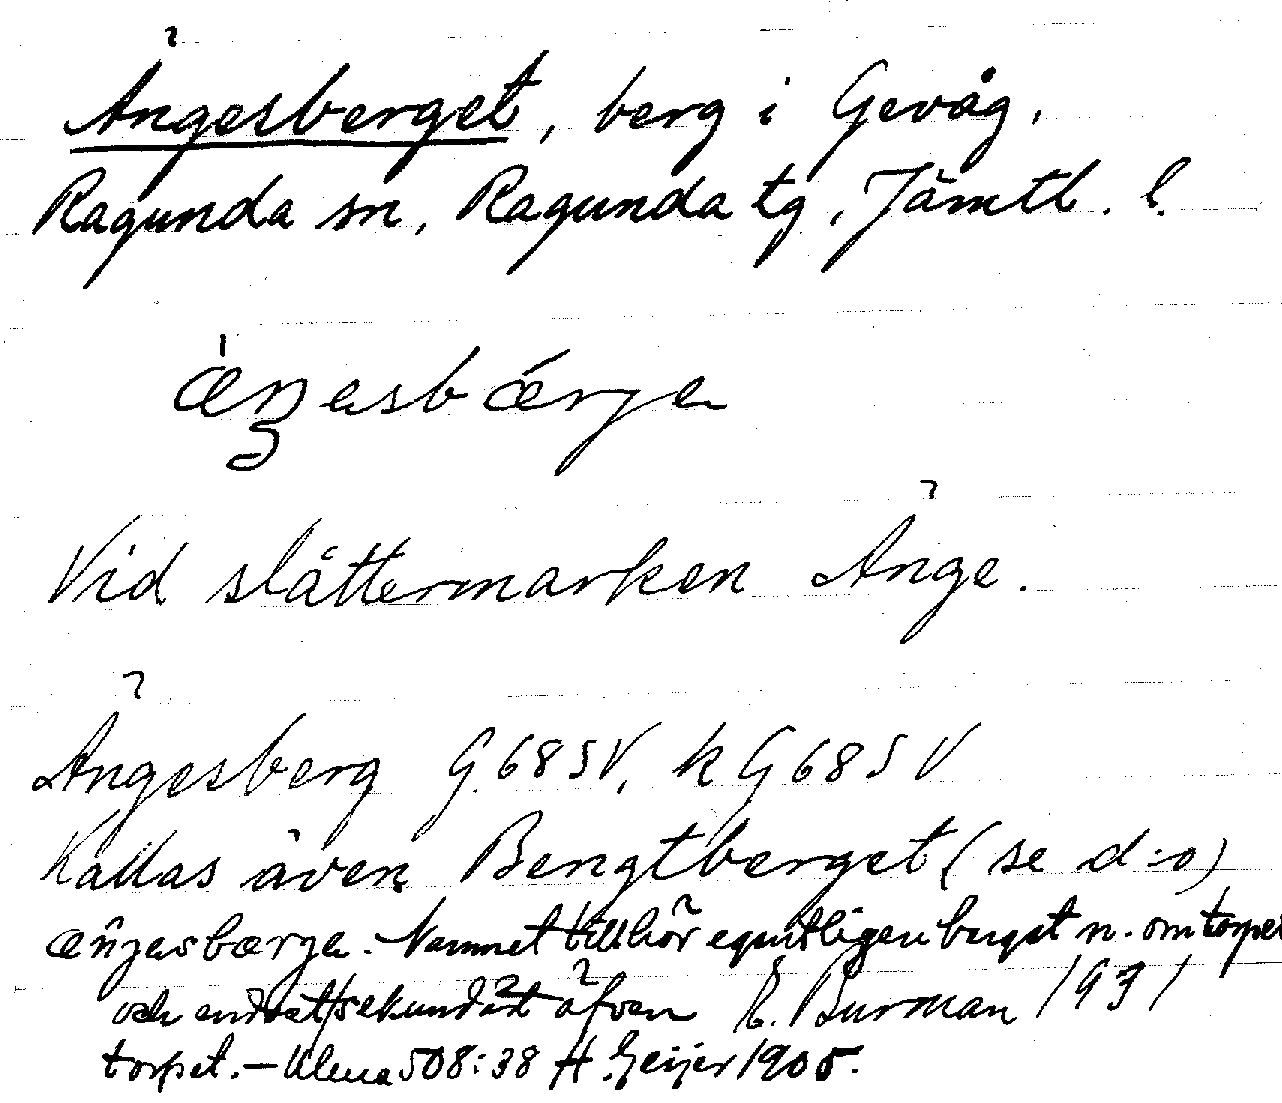 Ängesberget, berg i Gevåg,
Ragunda sn, Ragunda tg, Jämtl. l.
æŋesbærje
Vid slåttermarken Änge.
Ängesberg G 68 5 V, k G 68 5 V
Kallas även Bengtberget (se d:o)
æŋjesbærje. Namnet tillhör egentligen berget n. om torpet
och endast sekundärt äfven E. Burman 1931
torpet. – Ulma 508:38 H. Geijer 1905.